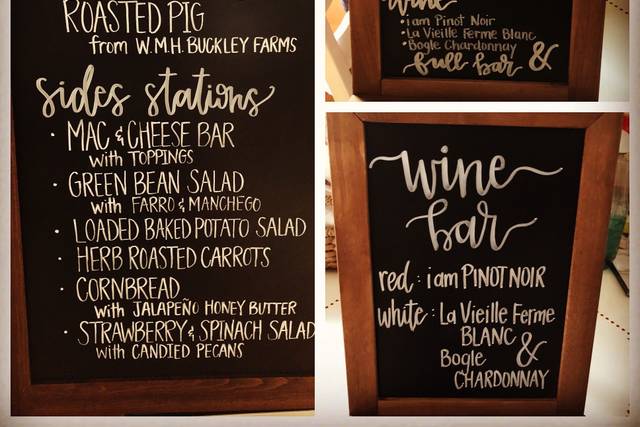 ROASTED PIG
from W.M.H. BUCKLEY FARMS
sides stations
· MAC & CHEESE BAR
with TOPPINGS
· GREEN BEAN SALAD
with FARRO & MANCHEGO
· LOADED BAKED POTATO SALAD
· HERB ROASTED CARROTS
· CORNBREAD
with JALAPEÑO HONEY BUTTER
· STRAWBERRY & SPINACH SALAD
with CANDIED PECANS
wine
• i am Pinot Noir
• La Vieille Ferme Blanc
• Bogle Chardonnay &
full bar
wine
bar
red: i am PINOT NOIR
white: La Vieille Ferme
BLANC &
Bogle
CHARDONNAY